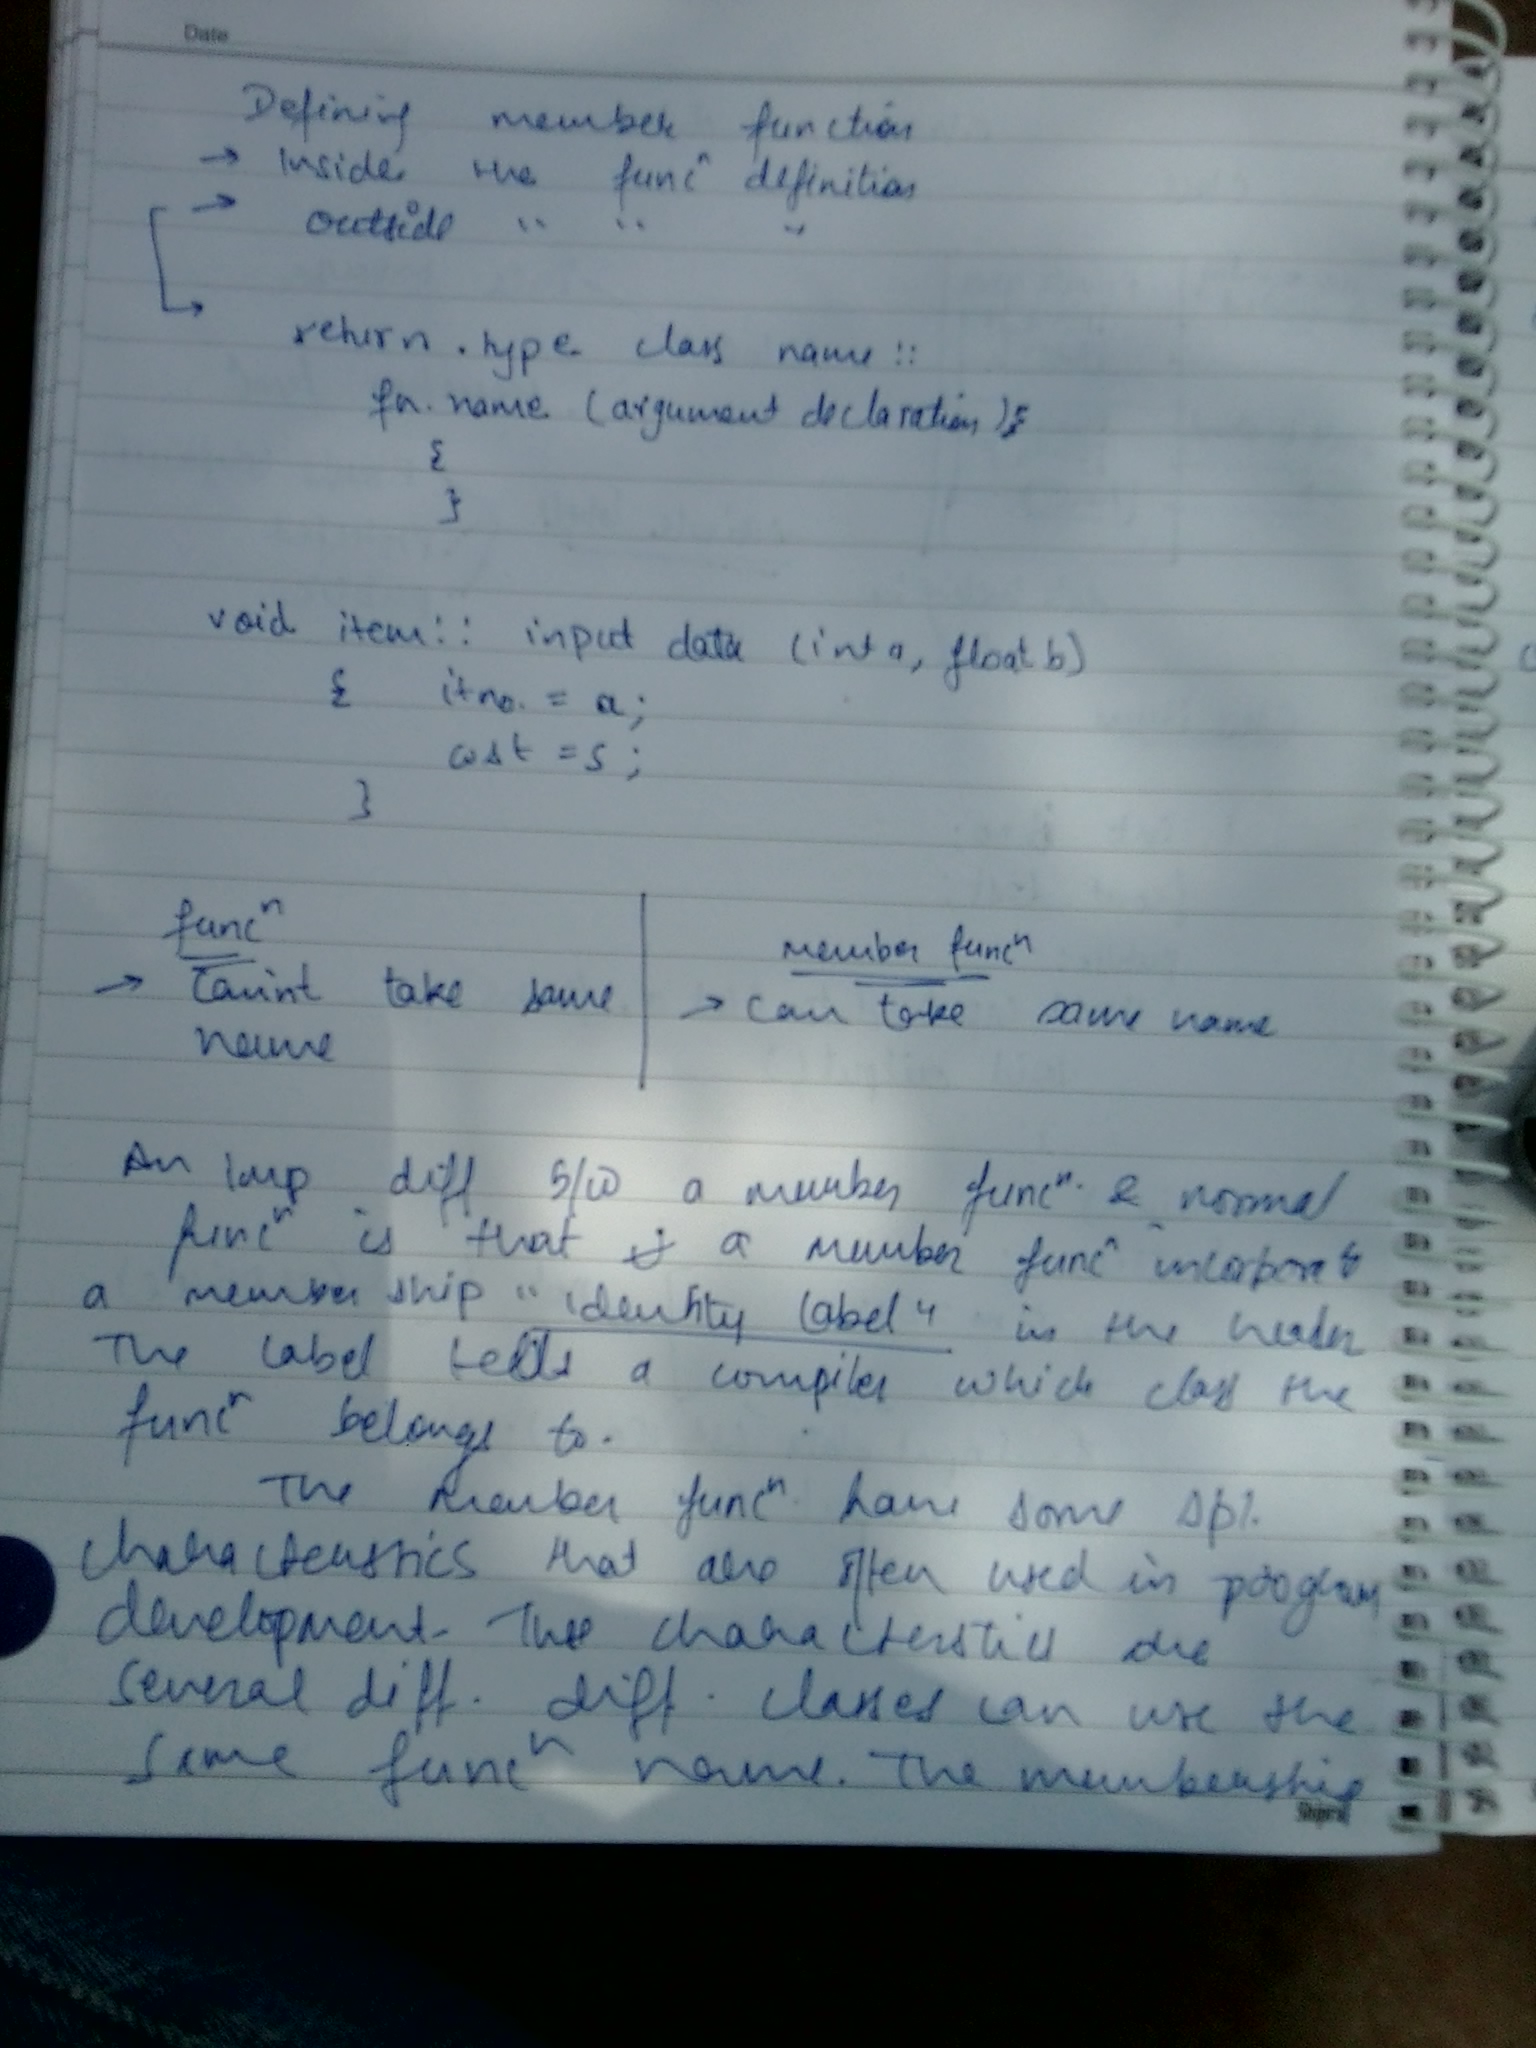 Date
Defining member function
→ Inside the funcⁿ definition
→ outside " " "
return . type class name ::
fn. name (argument declaration);
{
}
void item :: input data (int a, float b)
{ itno. = a;
cost = s ;
}
funcⁿ
member funcⁿ
→ Can't take same
→ can take same name
name
An Imp diff b/w a member funcⁿ & normal
funcⁿ is that a member funcⁿ incorporates
a membership "identity label" in the header
The label tells a compiler which class the
funcⁿ belongs to.
The member funcⁿ have some spl.
characteristics that are often used in program
development. The characteristics are
several diff. diff. classes can use the
same funcⁿ name. The membership
Shipra